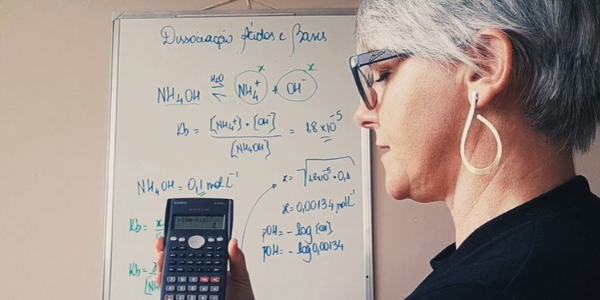 Dissociação Ácidos e Bases
NH₄OH ⇌ NH₄⁺ + OH⁻
H₂O
x x
Kb = [NH₄⁺]·[OH⁻] / [NH₄OH] = 1,8×10⁻⁵
NH₄OH = 0,1 mol L⁻¹
Kb =
Kb =
x = √1,8×10⁻⁵·0,1
x = 0,00134 mol L⁻¹
pOH = -log [OH]
pOH = -log 0,00134
CASIO